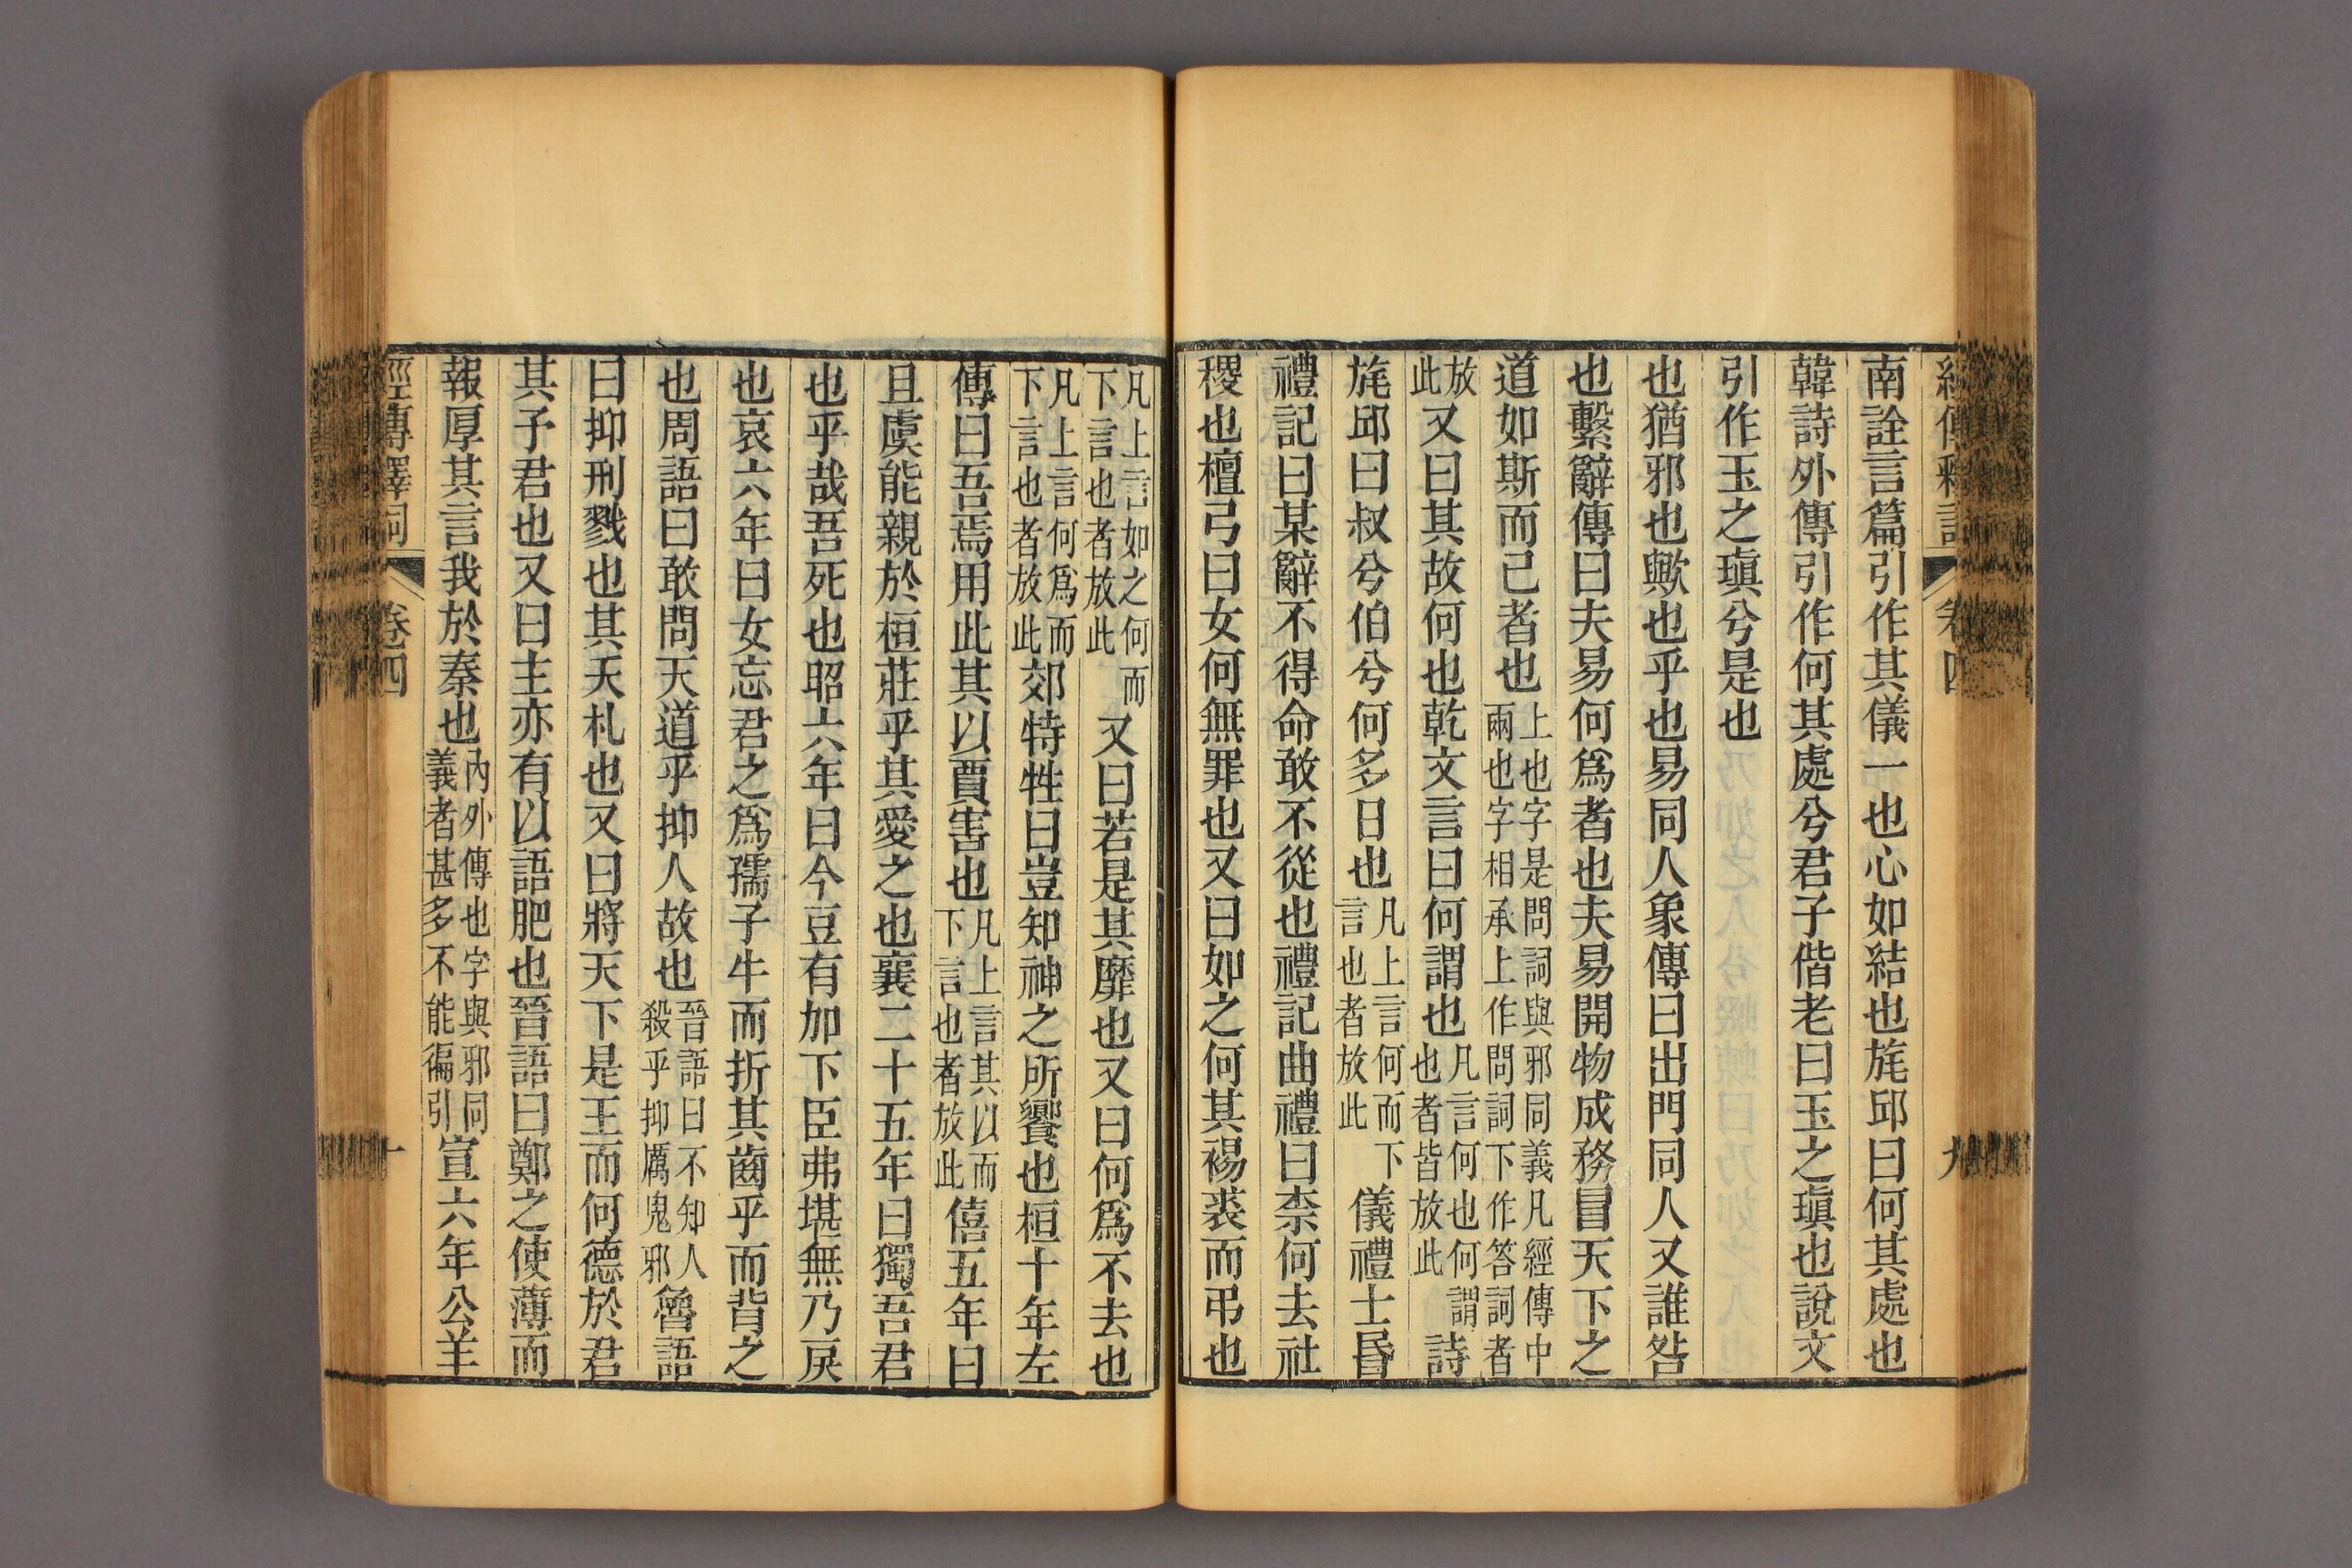 經傳釋詞 卷四 九
南詮言篇引作其儀一也心如結也旄邱曰何其處也
韓詩外傳引作何其處兮君子偕老曰玉之瑱也說文
引作玉之瑱兮是也
也猶邪也歟也乎也易同人象傳曰出門同人又誰咎
也繫辭傳曰夫易何爲者也夫易開物成務冒天下之
道如斯而已者也上也字是問詞與邪同義凡經傳中
兩也字相承上作問詞下作答詞者
放
此又曰其故何也乾文言曰何謂也凡言何也何謂
也者皆放此詩
旄邱曰叔兮伯兮何多日也凡上言何而下
言也者放此儀禮士昏
禮記曰某辭不得命敢不從也禮記曲禮曰柰何去社
稷也檀弓曰女何無罪也又曰如之何其裼裘而弔也
凡上言如之何而
下言也者放此又曰若是其靡也又曰何爲不去也
凡上言何爲而
下言也者放此郊特牲曰豈知神之所饗也桓十年左
傳曰吾焉用此其以賈害也凡上言其以而
下言也者放此僖五年曰
且虞能親於桓莊乎其愛之也襄二十五年曰獨吾君
也乎哉吾死也昭六年曰今豆有加下臣弗堪無乃戾
也哀六年曰女忘君之爲孺子牛而折其齒乎而背之
也周語曰敢問天道乎抑人故也晉語曰不知人
殺乎抑厲鬼邪魯語
曰抑刑戮也其夭札也又曰將天下是王而何德於君
其予君也又曰主亦有以語肥也晉語曰鄭之使薄而
報厚其言我於秦也內外傳也字與邪同
義者甚多不能徧引宣六年公羊
經傳釋詞 卷四